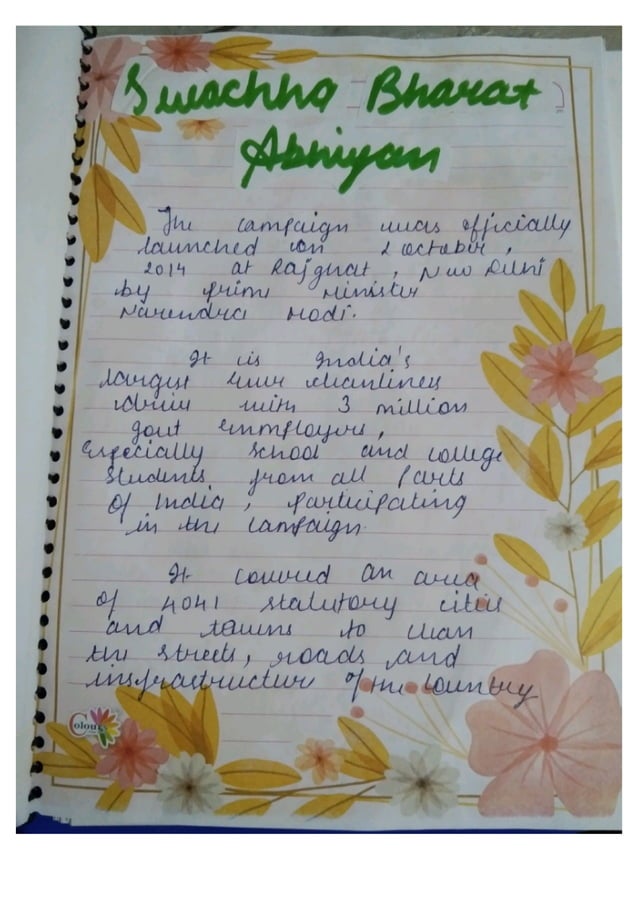 Swachha Bharat
Abhiyan
The campaign was officially
launched on 2 october,
2014 at Rajghat, New Delhi
by prime Minister
Narendra Modi.
It is India's
largest ever cleanliness
drive with 3 million
gout emmployers,
Especially school and college
students from all parts
of India, participating
in the campaign.
It covered an area
of 4041 statutory cities
and towns to clean
the streets, roads and
insfrastructure of the country
Colour